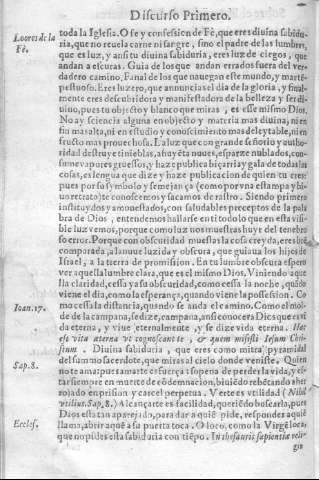 Discurso Primero.
Loores de la Fè.
toda la Iglesia. O fe y confession de Fè, que eres diuina sabiduria, que no reuela carne ni sangre, sino el padre de las lumbres,
que es luz, y ansi tu diuina sabiduria, eres luz de ciegos, que
andan a escuras. Guia de los que andan errados fuera del verdadero camino. Fanal de los que nauegan este mundo, y
pestuoso. Eres luzero, que annuncias el dia de la gloria, y finalmente eres descubridora y manifestadora de la belleza y ser diuino, pues tu objecto y blanco que miras, es esse mismo Dios.
No ay sciencia alguna en objecto y materia mas diuina, ni en
fin mas alta, ni en estudio y conoscimiento mas deleytable, ni en
fructo mas prouechosa. La luz que con grande señorio y authoridad destruye tinieblas, ahuyēta nues, esparze nublados, consume vapores gruessos, y haze publica bizarria y gala de todas las
cosas, es lengua que dize y haze publicacion de quien tu eres:
pues por su symbolo y semejança (como por vna estampa y biuo retrato) te conoscemos y sacamos de rastro. Siendo primero
instituydos y amonestados, con saludables preceptos de la palabra de Dios, entendemos hallarse en ti todo lo que en esta visible luz vemos, porque como luz nos muestras huyr del tenebroso error. Porque con obscuridad muestras la cosa creyda, eres biē
comparada, a la nuue luzida y obscura, que guiaua los hijos de
Israel, a la tierra de promission. En tu lumbre obscura espero
ver aquella lumbre clara, que es el mismo Dios. Viniendo aquella claridad, cessa ya su obscuridad, como cessa la noche, quādo
viene el dia, como la esperança, quando viene la possession. Como cessa la distancia, quando se anda el camino.
Ioan. 17.
Como el molde de la campana, se dize, campana, ansi conocer a Dios que es vida eterna, y viue eternalmente, y se dize vida eterna. Hæc
est vita æterna vt cognoscant te, & quem misisti Iesum Christum. Diuina sabiduria, que eres como mitra pyramidal
del summo sacerdote, que miras al cielo donde veniste.
Sap. 8.
Quien no te ama, pues amarte es fuerça: so pena de perder la vida, y estar siempre en muerte de cōdemnacion, biuiēdo rebētando aherrojado en prision y carcel perpetua. Verte es vtilidad (Nihil
vtilius. Sap. 8.) Alcançarte es facilidad, queriēdo buscarla, pues
Dios esta tan aparejado, para dar a quiē pide, responder a quiē
llama, abrir a quē a su puerta toca.
Eccles.
O loco, como la Virgē loca,
que no pides esta sabiduria con tiēpo. In thesauris sapientiæ
gis